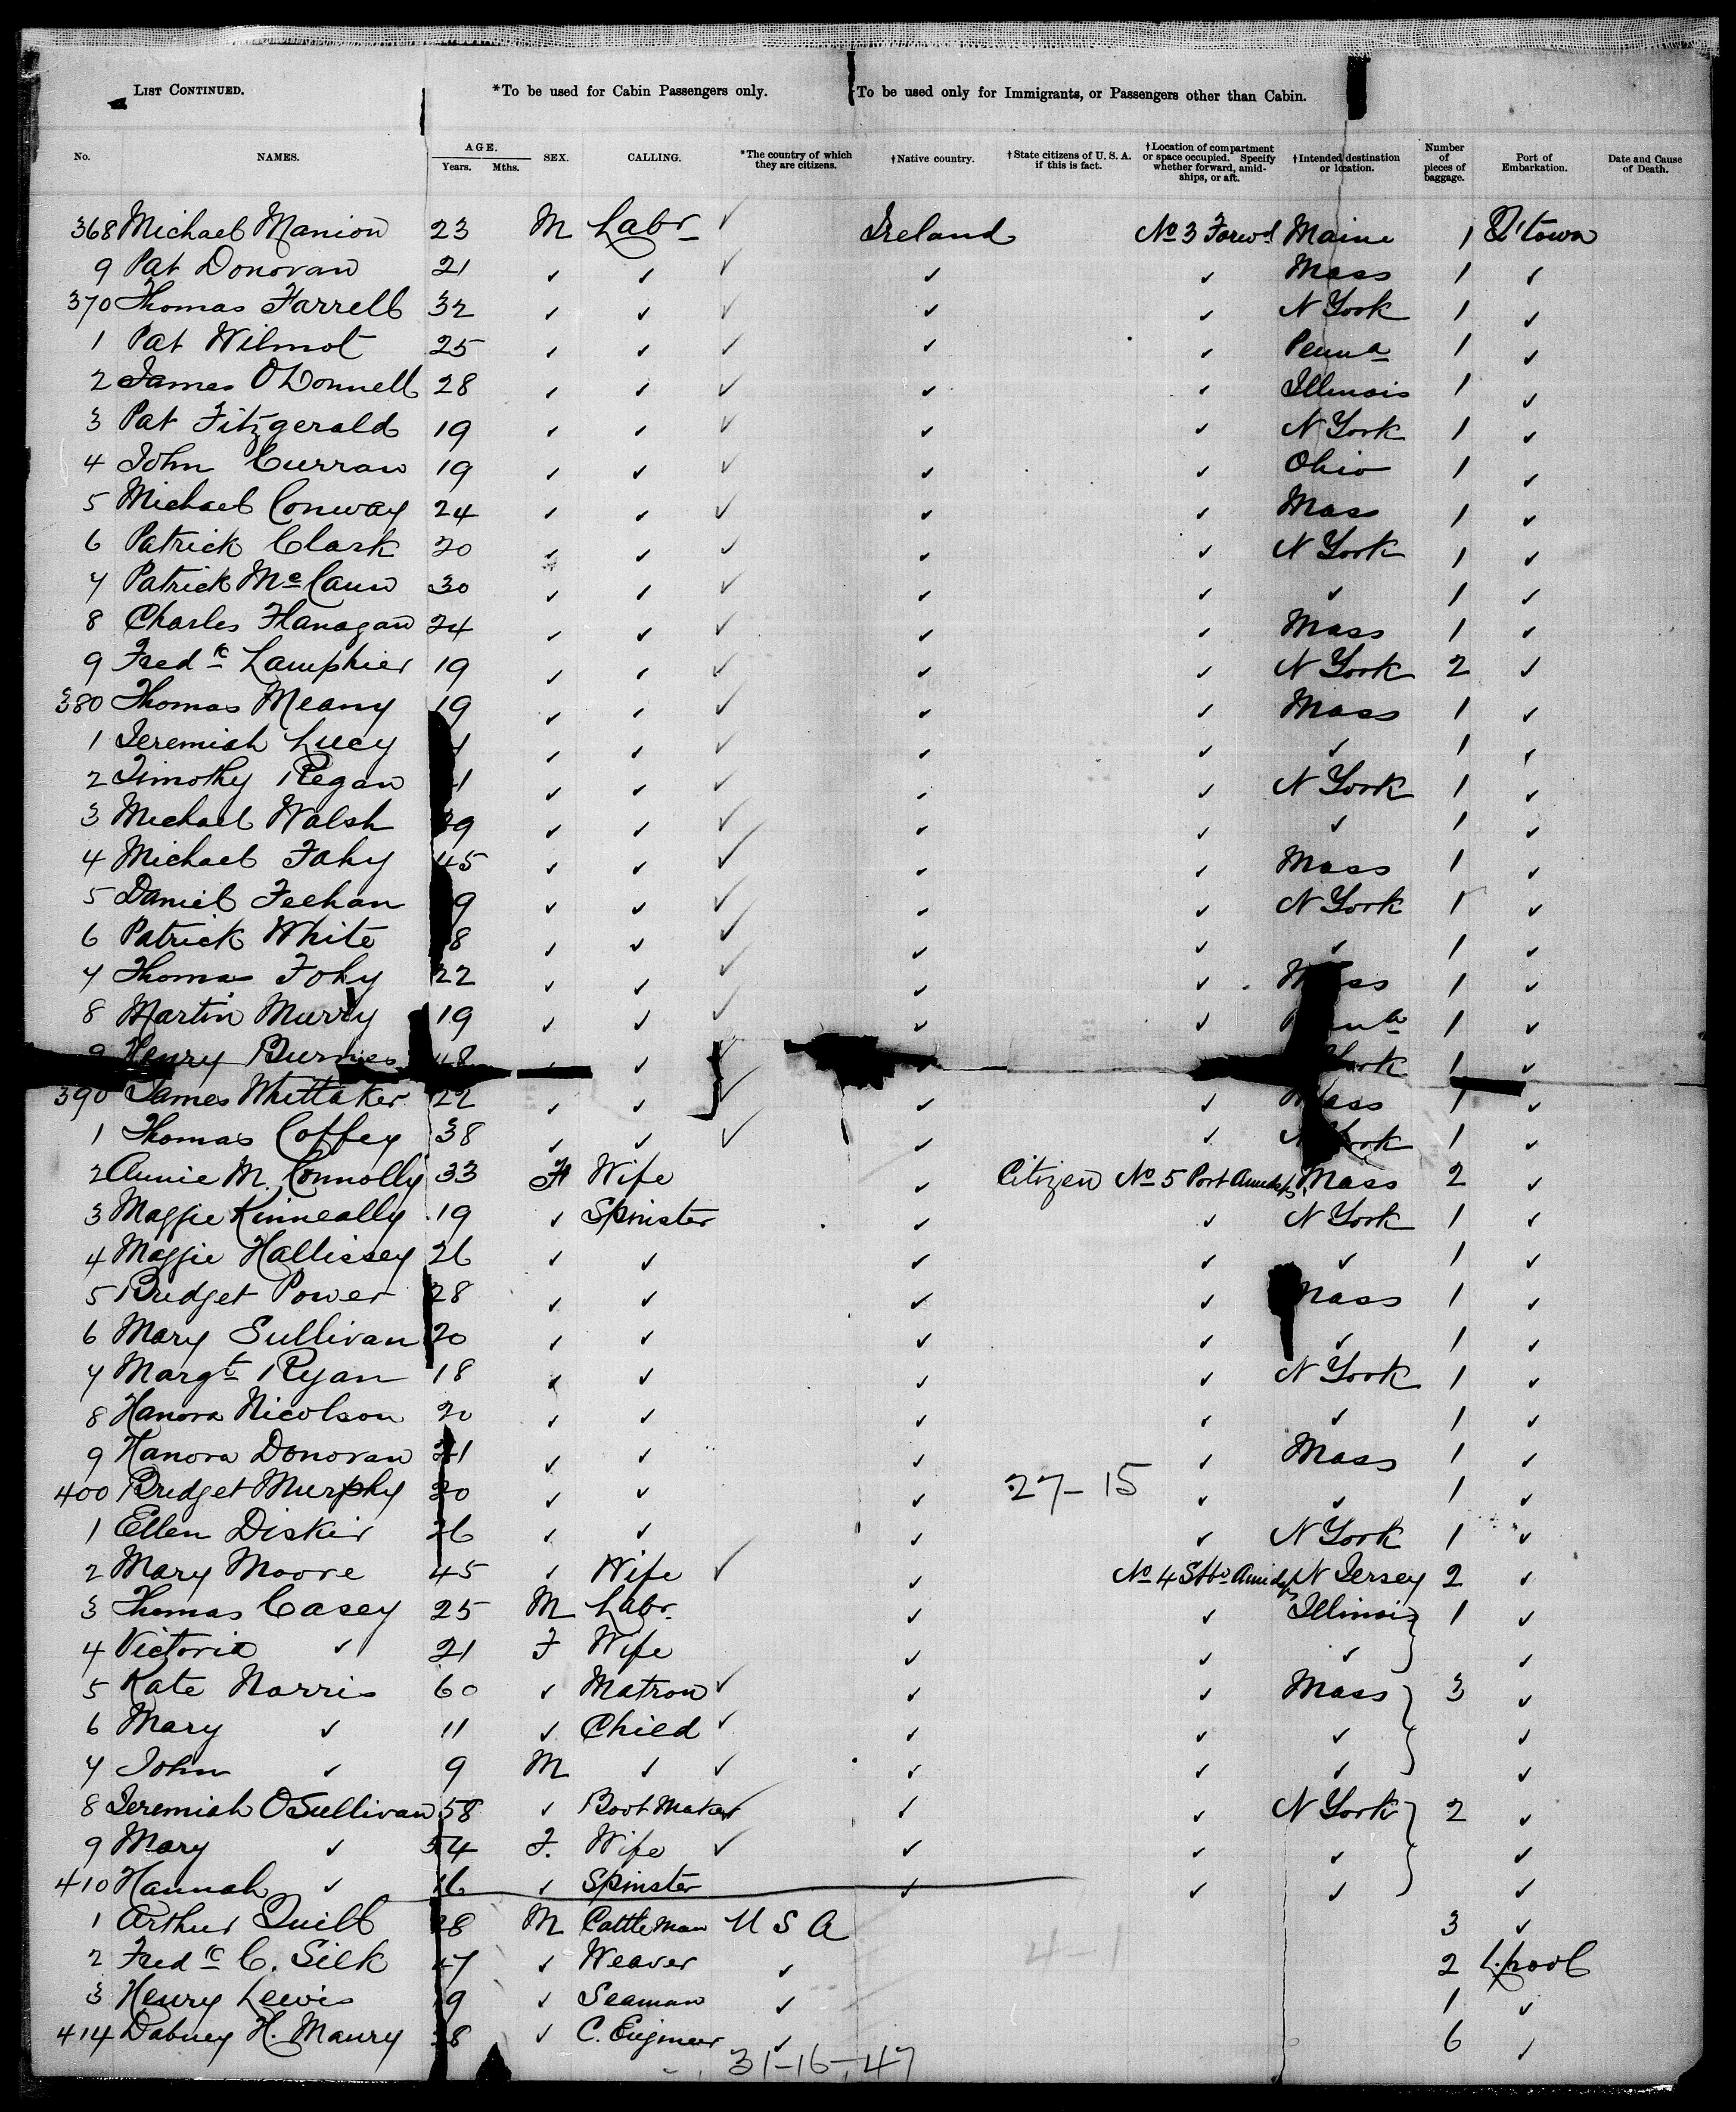 List Continued. *To be used for Cabin Passengers only. To be used only for Immigrants, or Passengers other than Cabin.
No. NAMES. AGE. Years. Mths. SEX. CALLING. *The country of which they are citizens. †Native country. †State citizens of U. S. A. if this is fact. †Location of compartment or space occupied. Specify whether forward, amidships, or aft. †Intended destination or location. Number of pieces of baggage. Port of Embarkation. Date and Cause of Death.
368 Michael Manion 23 M Labr ✓ Ireland No 3 Forwd Maine 1 Q'town
9 Pat Donovan 21 ✓ ✓ ✓ ✓ ✓ Mass 1 ✓
370 Thomas Farrell 32 ✓ ✓ ✓ ✓ ✓ N York 1 ✓
1 Pat Wilmot 25 ✓ ✓ ✓ ✓ ✓ Penna 1 ✓
2 James O'Donnell 28 ✓ ✓ ✓ ✓ ✓ Illinois 1 ✓
3 Pat Fitzgerald 19 ✓ ✓ ✓ ✓ ✓ N York 1 ✓
4 John Curran 19 ✓ ✓ ✓ ✓ ✓ Ohio 1 ✓
5 Michael Conway 24 ✓ ✓ ✓ ✓ ✓ Mass 1 ✓
6 Patrick Clark 20 ✓ ✓ ✓ ✓ ✓ N York 1 ✓
7 Patrick McCann 30 ✓ ✓ ✓ ✓ ✓ ✓ 1 ✓
8 Charles Flanagan 24 ✓ ✓ ✓ ✓ ✓ Mass 1 ✓
9 Fredc Lamphier 19 ✓ ✓ ✓ ✓ ✓ N York 2 ✓
380 Thomas Meany 19 ✓ ✓ ✓ ✓ ✓ Mass 1 ✓
1 Jeremiah Lucy ✓ ✓ ✓ ✓ ✓ ✓ 1 ✓
2 Timothy Regan ✓ ✓ ✓ ✓ ✓ N York 1 ✓
3 Michael Walsh ✓ ✓ ✓ ✓ ✓ ✓ 1 ✓
4 Michael Fahy 45 ✓ ✓ ✓ ✓ ✓ Mass 1 ✓
5 Daniel Feehan ✓ ✓ ✓ ✓ ✓ N York 1 ✓
6 Patrick White ✓ ✓ ✓ ✓ ✓ ✓ 1 ✓
7 Thomas Fohy 22 ✓ ✓ ✓ ✓ ✓ Mass 1 ✓
8 Martin Murry 19 ✓ ✓ ✓ ✓ ✓ Penna 1 ✓
9 Henry Burnes 48 ✓ ✓ ✓ York 1 ✓
390 James Whittaker 22 ✓ ✓ ✓ ✓ ✓ Mass 1 ✓
1 Thomas Coffey 38 ✓ ✓ ✓ ✓ ✓ N York 1 ✓
2 Annie M. Connolly 33 F Wife ✓ Citizen No 5 Port Amidsps Mass 2 ✓
3 Maggie Kinneally 19 ✓ Spinster ✓ ✓ N York 1 ✓
4 Maggie Hallissey 26 ✓ ✓ ✓ ✓ ✓ 1 ✓
5 Bridget Power 28 ✓ ✓ ✓ ✓ Mass 1 ✓
6 Mary Sullivan 20 ✓ ✓ ✓ ✓ ✓ 1 ✓
7 Margt Ryan 18 ✓ ✓ ✓ ✓ N York 1 ✓
8 Hanora Nicolson 20 ✓ ✓ ✓ ✓ ✓ 1 ✓
9 Hanora Donovan 21 ✓ ✓ ✓ ✓ Mass 1 ✓
400 Bridget Murphy 20 ✓ ✓ ✓ 27-15 ✓ ✓ 1 ✓
1 Ellen Diskin 26 ✓ ✓ ✓ ✓ N York 1 ✓
2 Mary Moore 45 ✓ Wife ✓ ✓ No 4 Stbd Amidsps N Jersey 2 ✓
3 Thomas Casey 25 M Labr ✓ ✓ Illinois 1 ✓
4 Victoria ✓ 21 F Wife ✓ ✓ ✓ ✓
5 Kate Norris 60 ✓ Matron ✓ ✓ ✓ Mass 3 ✓
6 Mary ✓ 11 ✓ Child ✓ ✓ ✓ ✓ ✓
7 John ✓ 9 M ✓ ✓ ✓ ✓ ✓ ✓
8 Jeremiah O'Sullivan 58 ✓ Boot Maker ✓ ✓ ✓ N York 2 ✓
9 Mary ✓ 54 F. Wife ✓ ✓ ✓ ✓ ✓
410 Hannah ✓ 16 ✓ Spinster ✓ ✓ ✓ ✓
1 Arthur Quill 28 M Cattleman U S A 3 ✓
2 Fredc C. Silk 47 ✓ Weaver ✓ 4-1 2 L'pool
3 Henry Lewis ✓ Seaman ✓ 1 ✓
414 Dabney H. Maury ✓ C. Engineer ✓ 6 ✓
31-16-47